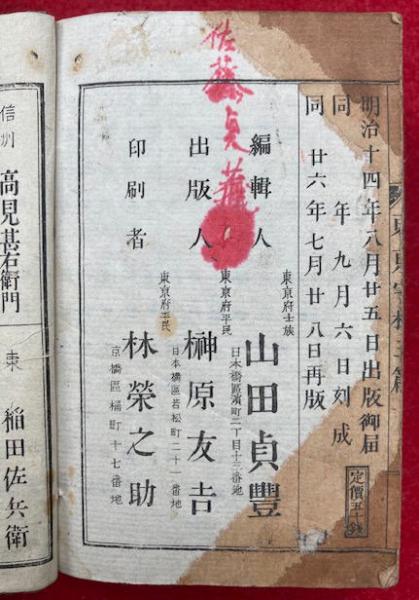 明治十四年八月廿五日出版御届
同 年九月六日刻成
同 廿六年七月廿八日再版
定價五十錢
編輯人
東京府士族
山田貞豐
日本橋區濱町二丁目十三番地
出版人
東京府平民
榊原友吉
日本橋區若松町二十一番地
印刷者
東京府平民
林榮之助
京橋區橘町十七番地
佐藤貞
信州
高見甚右衛門
東
稲田佐兵衛